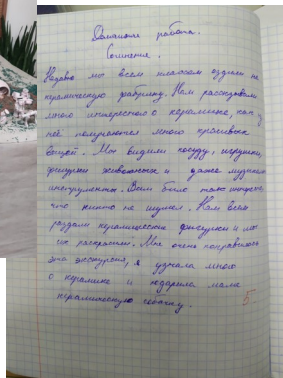 Домашняя работа.
Сочинение.
Недавно мы всем классом ездили на
керамическую фабрику. Нам рассказали
много интересного о керамике, как у
неё получаются много красивых
вещей. Мы видели посуду, игрушки,
фигурки животных и даже музыкал
инструменты. Всем было так интересно
что никто не шумел. Нам всем
раздали керамические фигурки и мы
их раскрасили. Мне очень понравилась
эта экскурсия, я узнала много
о керамике и подарила маме
керамическую собачку.
5